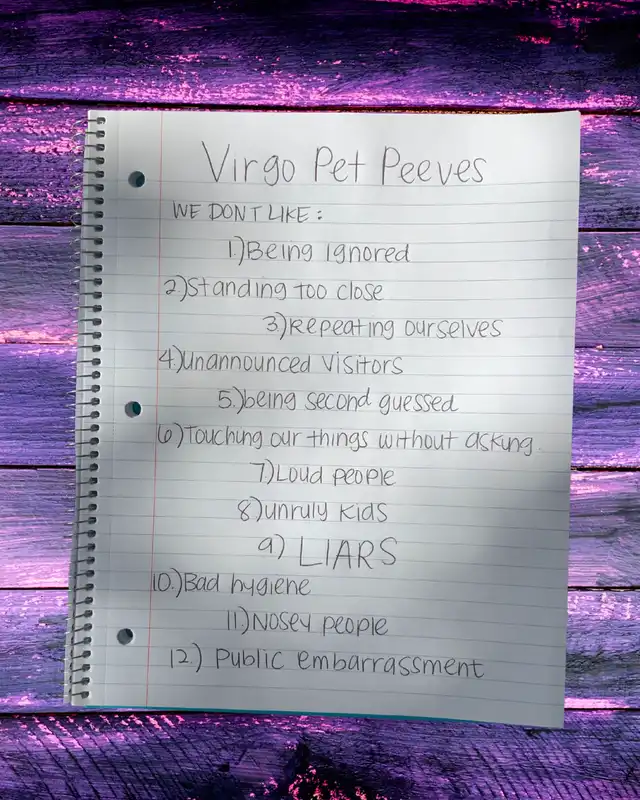 Virgo Pet Peeves
WE DONT LIKE:
1)Being ignored
2)Standing too close
3)Repeating ourselves
4)Unannounced visitors
5.)being second guessed
6)Touching our things without asking.
7)Loud people
8)unruly kids
9) LIARS
10.)Bad hygiene
11)Nosey people
12.) Public embarrassment